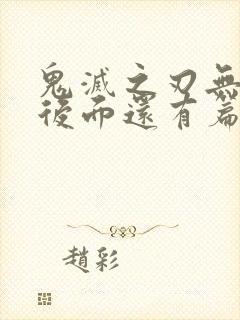 鬼滅之刃無
後而還有篇
趙彩